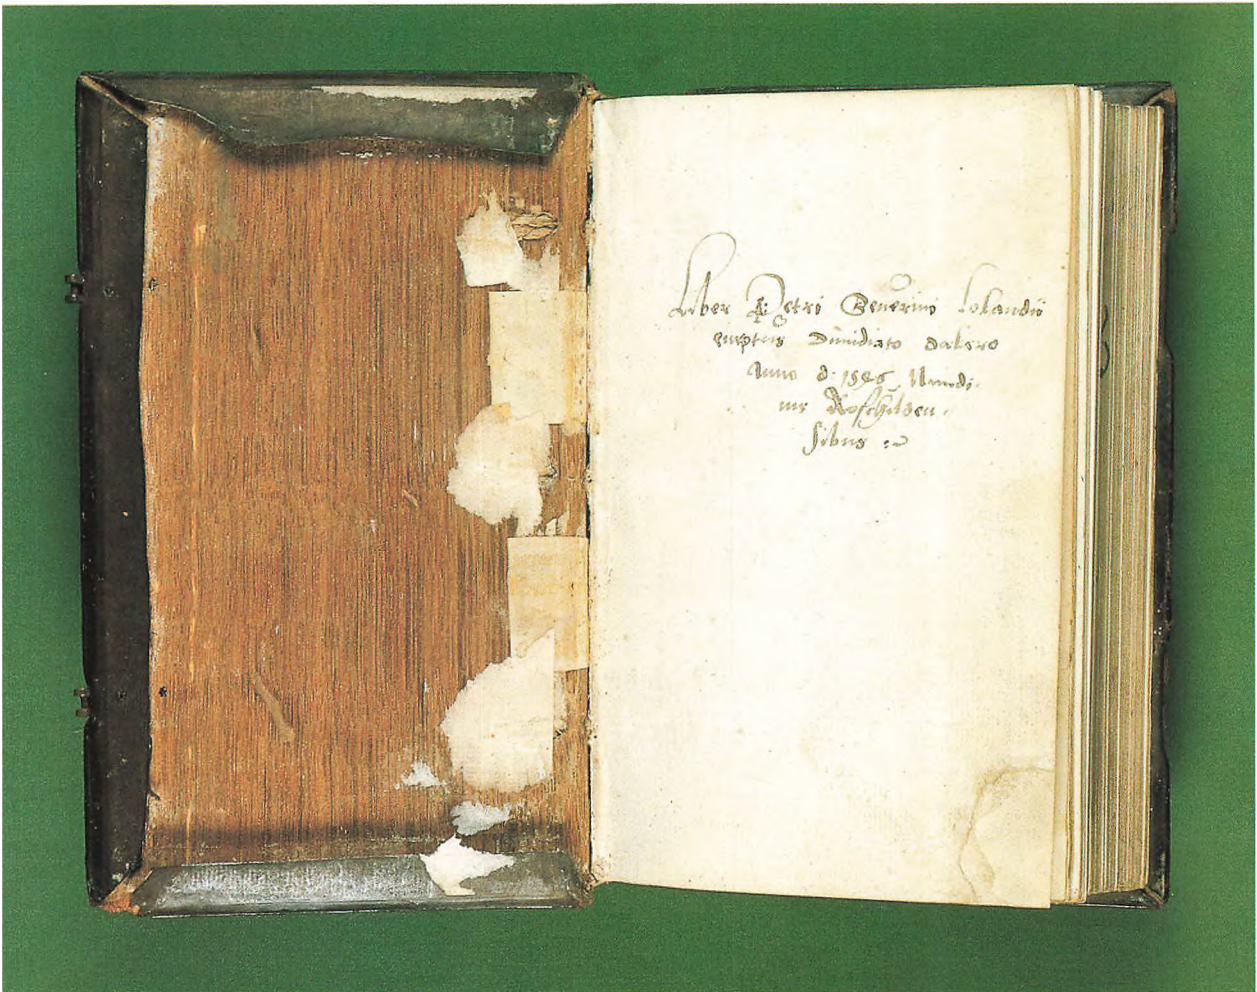 Liber Petri Seuerini Lolandii
emptus dimidiato dalero
Anno d: 1546 Nundi-
nis Roschilden-
sibus